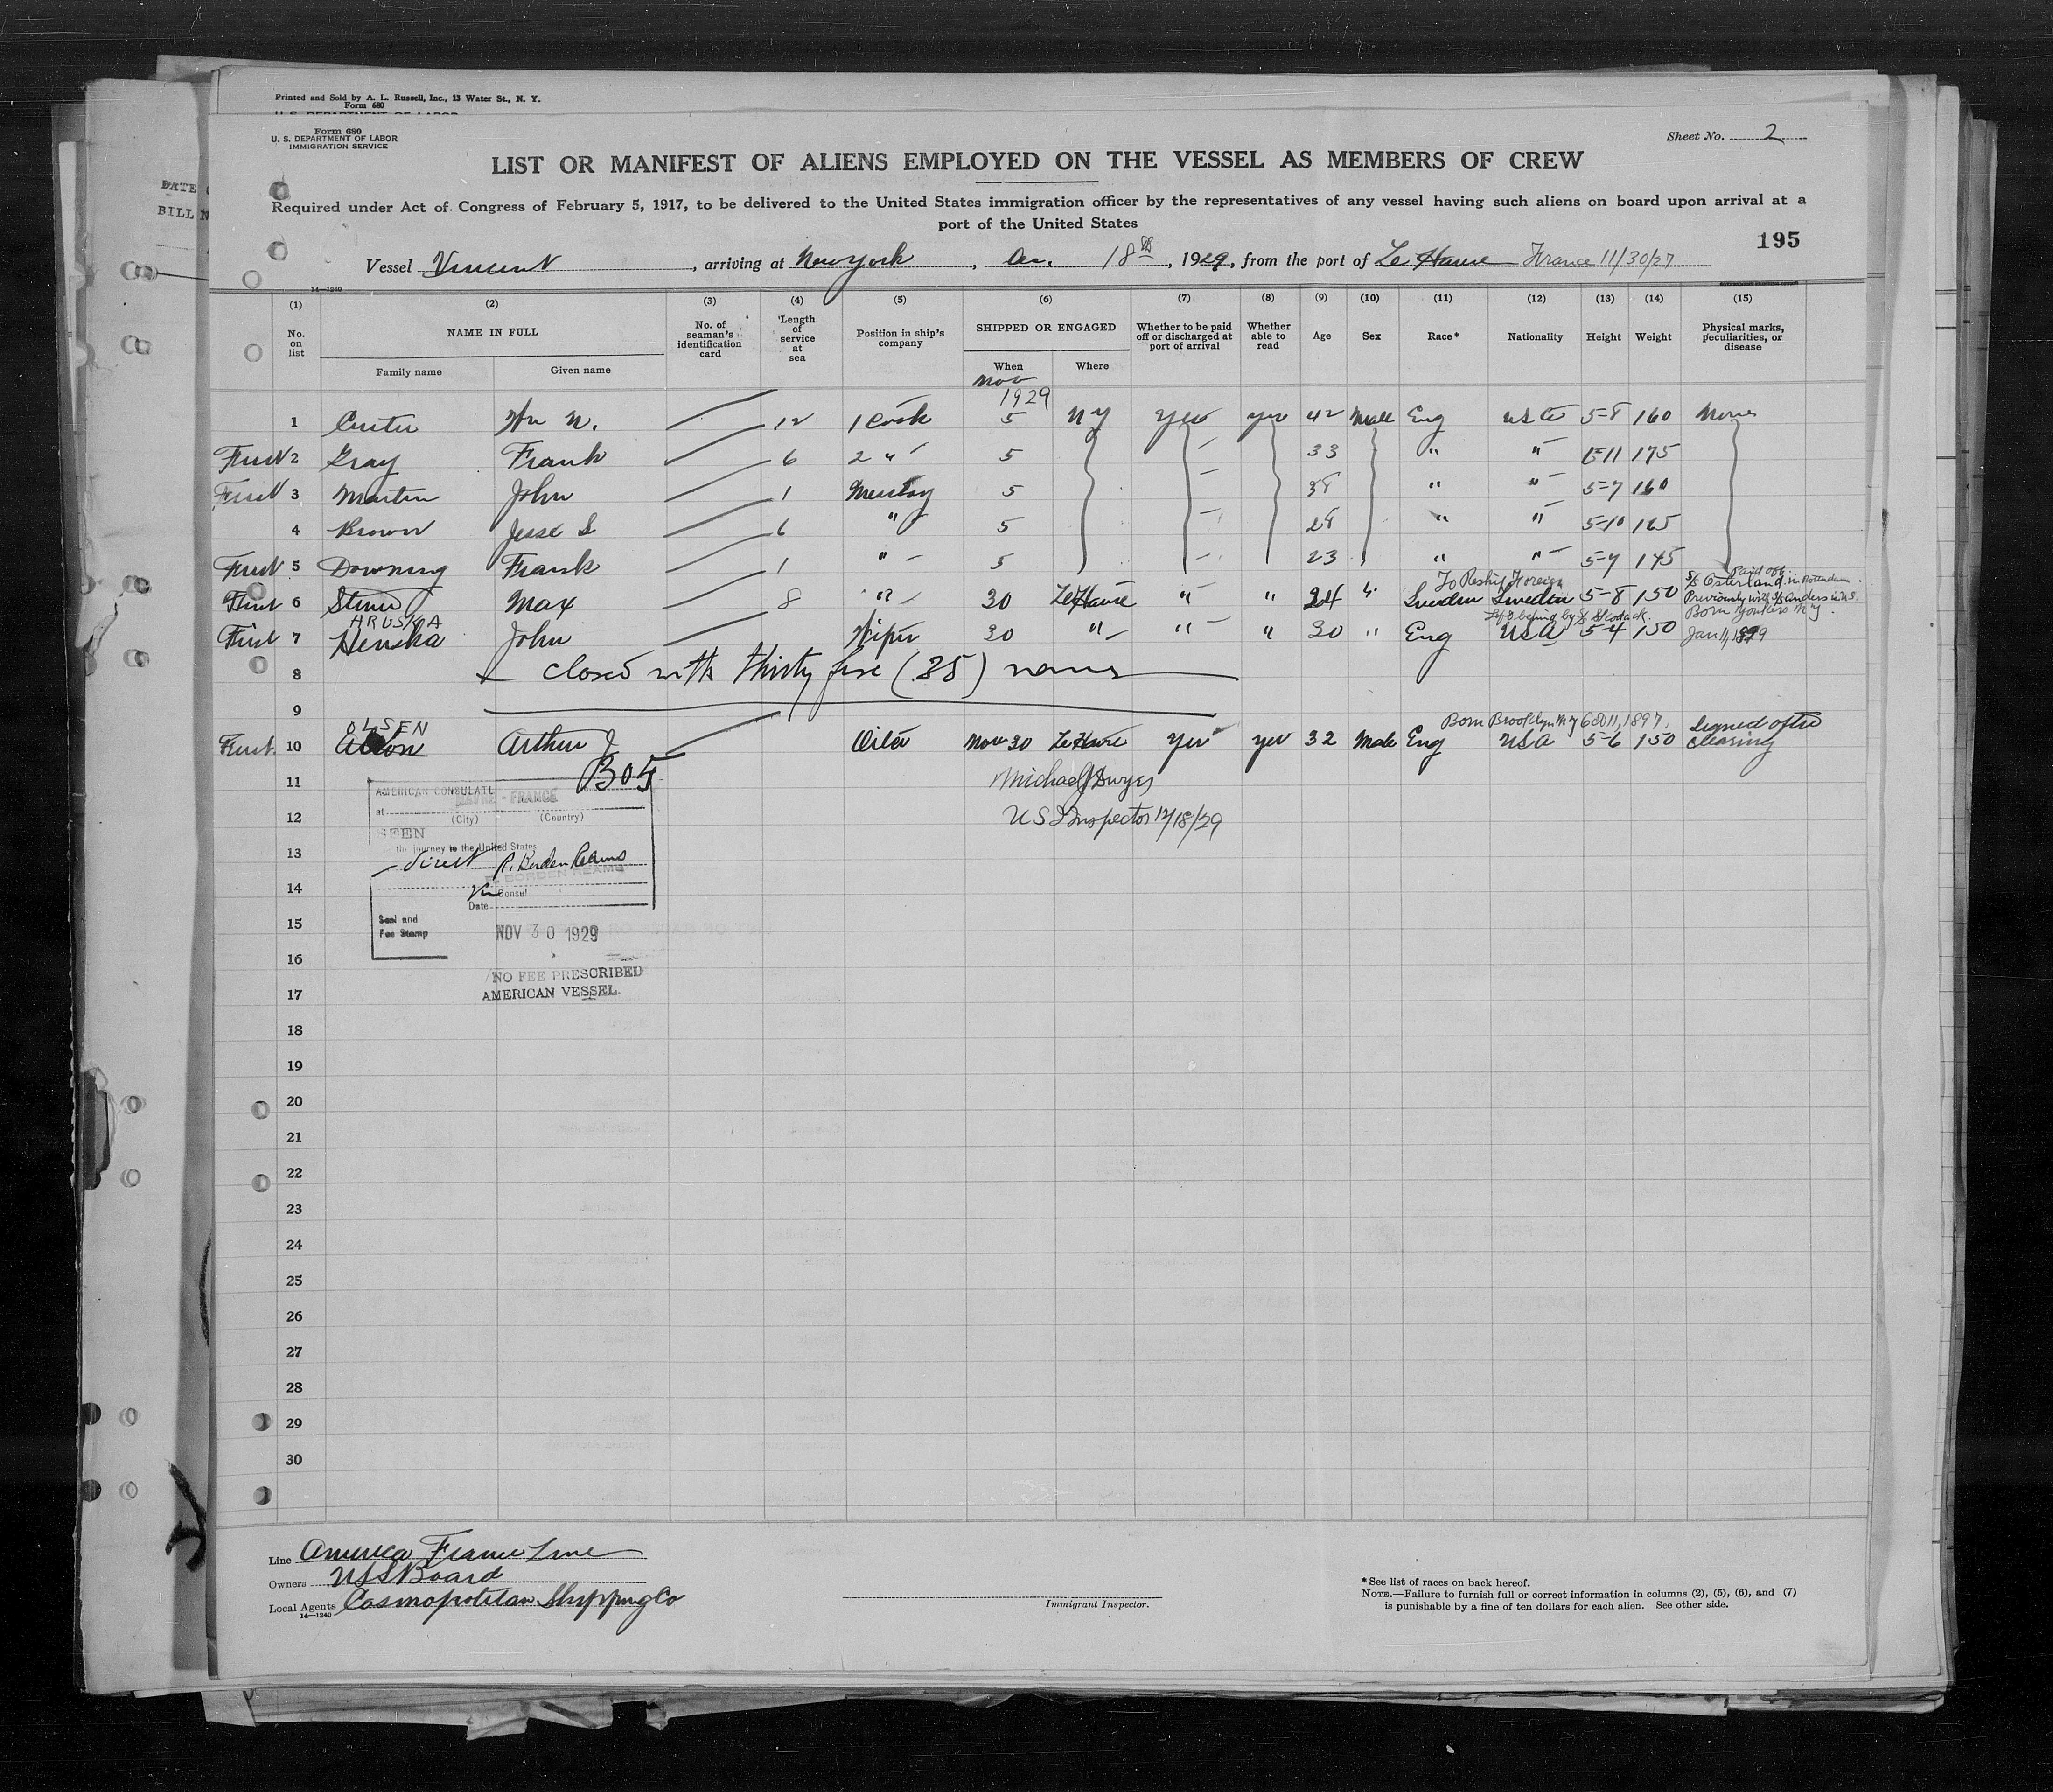 Printed and Sold by A. L. Russell, Inc., 13 Water St., N. Y.
Form 680
U. S. DEPARTMENT OF LABOR
Form 680
U. S. DEPARTMENT OF LABOR
IMMIGRATION SERVICE
Sheet No. 2
LIST OR MANIFEST OF ALIENS EMPLOYED ON THE VESSEL AS MEMBERS OF CREW
DATE
BILL N
Required under Act of Congress of February 5, 1917, to be delivered to the United States immigration officer by the representatives of any vessel having such aliens on board upon arrival at a
port of the United States
195
Vessel Vincent, arriving at New York, 18th, 1929, from the port of Le Havre France 11/30/27
14—1240
(1) (2) (3) (4) (5) (6) (7) (8) (9) (10) (11) (12) (13) (14) (15)
No. on list
NAME IN FULL
Family name
Given name
No. of seaman's identification card
Length of service at sea
Position in ship's company
SHIPPED OR ENGAGED
When
Where
Whether to be paid off or discharged at port of arrival
Whether able to read
Age
Sex
Race*
Nationality
Height
Weight
Physical marks, peculiarities, or disease
Nov
1929
1 Wm N. 12 1 Cook 5 NY Yes yes 42 Male Eng USA 5-8 160 None
First 2 Gray Frank 6 2 " 5 33 " " 5-11 175
First 3 Martin John 1 Messboy 5 38 " " 5-7 160
4 Brown Jesse S 6 " 5 28 " " 5-10 165
First 5 Downing Frank 1 " 5 23 " " 5-7 145
To Reship Foreign
Paid off
S/S Osterland in Rotterdam
First 6 Max 8 " 30 Le Havre " " 24 " Sweden Sweden 5-8 150
HRUSKA
Born Yonkers NY
First 7 Henska John Wiper 30 " " " 30 " Eng USA 5-4 150 Jan 11, 1899
8 Closed with thirty five (35) names
9
OLSEN
Born Brooklyn NY 11, 1897.
Signed after
First 10 Arthur J Oiler Nov 30 Le Havre Yes yes 32 Male Eng USA 5-6 150 clearing
B05
11 Michael J Dwyer
12 US Inspector 12/18/29
AMERICAN CONSULATE
at HAVRE - FRANCE
(City) (Country)
SEEN
the journey to the United States
direct R. Borden Reams
R. BORDEN REAMS
Vice Consul
Date
Seal and
Fee Stamp
NOV 30 1929
NO FEE PRESCRIBED
AMERICAN VESSEL.
13
14
15
16
17
18
19
20
21
22
23
24
25
26
27
28
29
30
Line America France Line
Owners USSBoard
Local Agents Cosmopolitan Shipping Co
14—1240
Immigrant Inspector.
*See list of races on back hereof.
NOTE.—Failure to furnish full or correct information in columns (2), (5), (6), and (7)
is punishable by a fine of ten dollars for each alien. See other side.